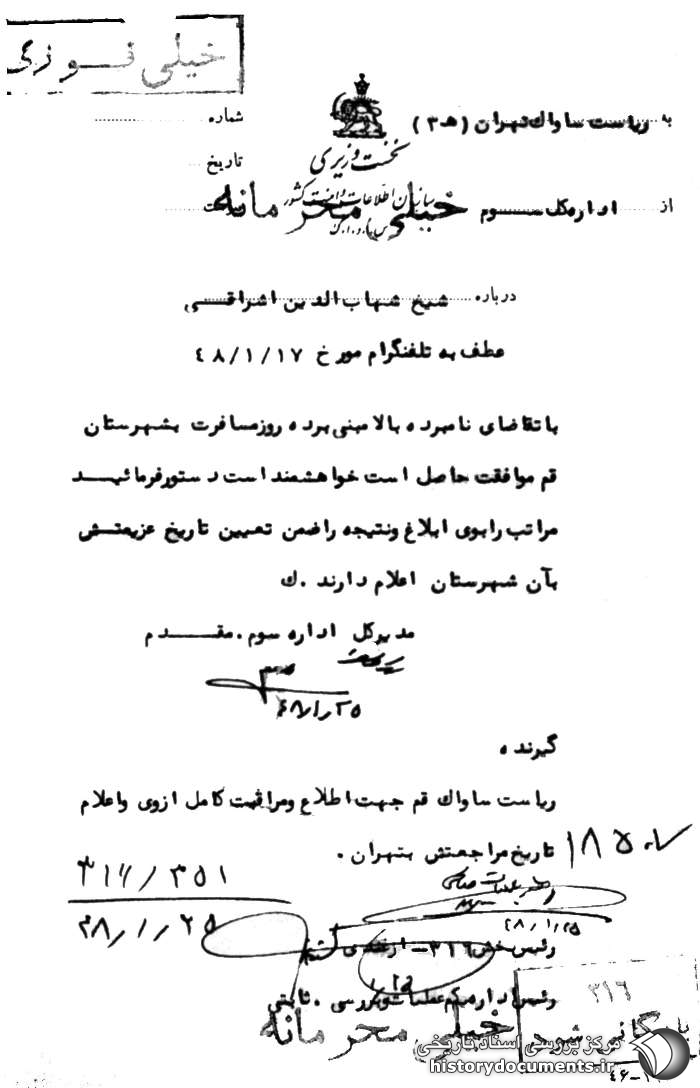 خیلی فوری
به ریاست ساواک تهران (هـ ۳)
شماره
نخست وزیری
تاریخ
سازمان اطلاعات و امنیت کشور
از اداره کل سوم
خیلی محرمانه
درباره شیخ شهاب الدین اشراقی
عطف به تلفنگرام مورخ ۴۸/۱/۱۷
با تقاضای نامبرده بالا مبنی برده روز مسافرت بشهرستان
قم موافقت حاصل است خواهشمند است دستور فرمائید
مراتب را بوی ابلاغ ونتیجه را ضمن تعیین تاریخ عزیمتش
بآن شهرستان اعلام دارند . ک
مدیرکل اداره سوم . مقدم
۴۸/۱/۲۵
گیرنده
ریاست ساواک قم جهت اطلاع ومراقبت کامل ازوی واعلام
تاریخ مراجعتش بتهران .
۳۱۶/۳۵۱
۴۸/۱/۲۵
۴۸/۱/۲۵
رئیس بخش ۳۱۶ -
رئیس اداره یکم عملیات وبررسی . ثابتی
۳۱۶
خیلی محرمانه
بایگانی شود
مرکز بررسی اسناد تاریخی
historydocuments.ir